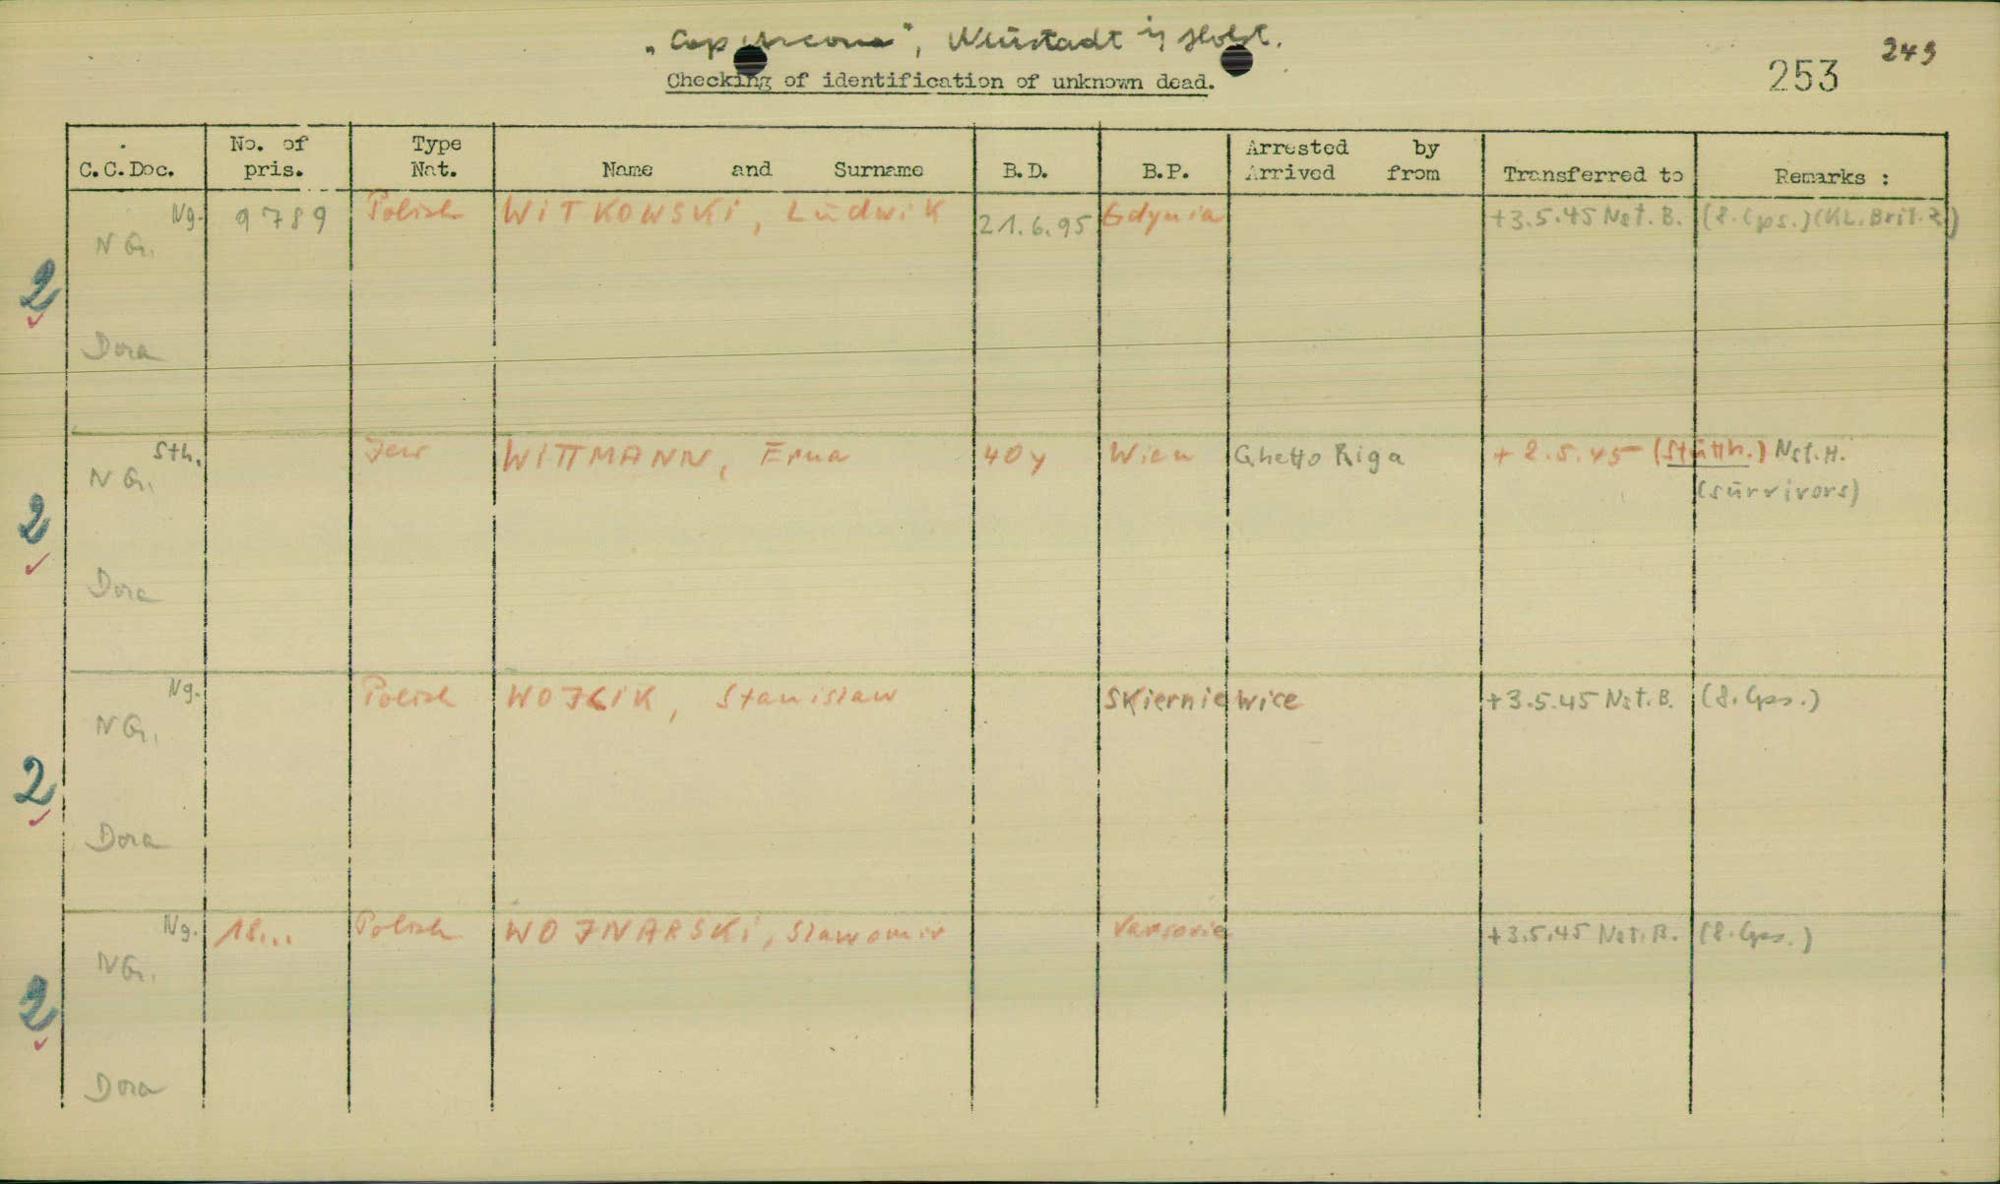 „Cap Arcona", Neustadt in Holst.
249
253
Checking of identification of unknown dead.
C.C.Doc. No. of pris. Type Nat. Name and Surname B.D. B.P. Arrested by Arrived from Transferred to Remarks :
Ng. 9789 Polish WITKOWSKI, Ludwik 21.6.95 Gdynia +3.5.45 Nst. B. (8. Gps.) (KL. Brit. Z.)
N Gr.
2
Dora
Sth. Jew WITTMANN, Erna 40y Wien Ghetto Riga + 2.5.45 (Stutth.) Nst. H.
N Gr. (survivors)
2
Dora
Ng. Polish WOJCIK, Stanislaw Skierniewice +3.5.45 Nst. B. (8. Gps.)
N Gr.
2
Dora
Ng. 18... Polish WOJNARSKI, Slawomir Varsovie +3.5.45 Nst. B. (8. Gps.)
N Gr.
2
Dora